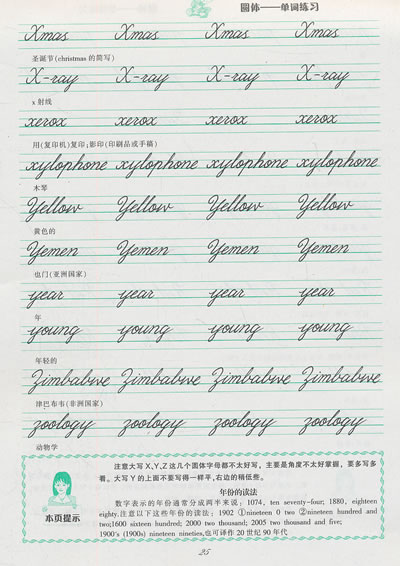 圆体——单词练习
Xmas Xmas Xmas Xmas
圣诞节(christmas 的简写)
X-ray X-ray X-ray X-ray
x 射线
xerox xerox xerox xerox
用(复印机)复印;影印(印刷品或手稿)
xylophone xylophone xylophone xylophone
木琴
Yellow Yellow Yellow Yellow
黄色的
Yemen Yemen Yemen Yemen
也门(亚洲国家)
year year year year
年
young young young young
年轻的
Zimbabwe Zimbabwe Zimbabwe Zimbabwe
津巴布韦(非洲国家)
zoology zoology zoology zoology
动物学
注意大写 X,Y,Z 这几个圆体字母都不太好写，主要是角度不太好掌握，要多写多
看。大写 Y 的上面不要写得一样平,右边的稍低些。
年份的读法
数字表示的年份通常分成两半来说: 1074, ten seventy-four; 1880, eighteen
eighty.注意以下这些年份的读法: 1902 ①nineteen 0 two ②nineteen hundred and
two;1600 sixteen hundred; 2000 two thousand; 2005 two thousand and five;
1900's (1900s) nineteen nineties,也可译作 20 世纪 90 年代
本页提示
25